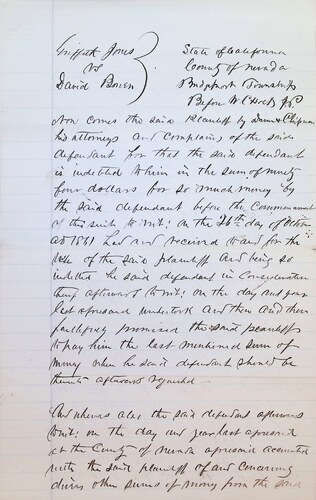 Griffith Jones
vs
David Bowen
State of California
County of Nevada
Bridgeport Township
Before
Now comes the said Plaintiff by Dunn & Chipman
his attorneys and complains of the said
defendant for that the said defendant
is indebted to him in the sum of ninety
four dollars for so much money by
the said defendant before the Commencement
of this suit to wit: on the 26th day of
AD 1861 had and received to and for the
use of the said plaintiff and being so
indebted he said defendant in Consideration
thereof afterwards to wit: on the day and year
last aforesaid undertook and then and there
faithfully promised the said plaintiff
to pay him the last mentioned sum of
money when he said defendant should be
thereto afterwards requested
And whereas also the said defendant afterwards
to wit: on the day and year last aforesaid
at the County of Nevada aforesaid accounted
with the said plaintiff of and concerning
divers other sums of money from the said